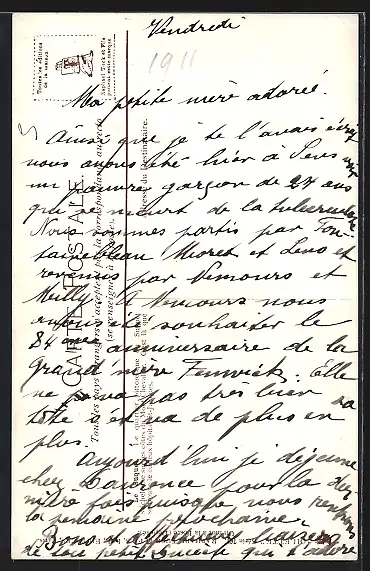 Vendredi
1911
Ma petite mère adorée.
Ainsi que je te l'avais écrit
nous avons été hier à Sens voir
un pauvre garçon de 27 ans
qui se meurt de la tuberculose
Nous sommes partis par Fon-
tainebleau Moret et Sens et
revenus par Nemours et
Milly. A Nemours nous
avons été souhaiter le
84 ème anniversaire de la
Grand mère Fenwick. Elle
ne va pas très bien sa
tête s'en va de plus en
plus.
Aujourd'hui je déjeune
chez Laurence pour la der-
nière fois puisque nous rentrons
la semaine prochaine.
Bons et affectueux baisers
de ta petite qui t'adore
CARTE POSTALE
Tous les pays étrangers n'acceptent pas la correspondance au recto
(se renseigner à la Poste).
Adresse du Destinataire.
Toutes les éditions
de la maison
Raphael Tuck et Fils
portent cette marque